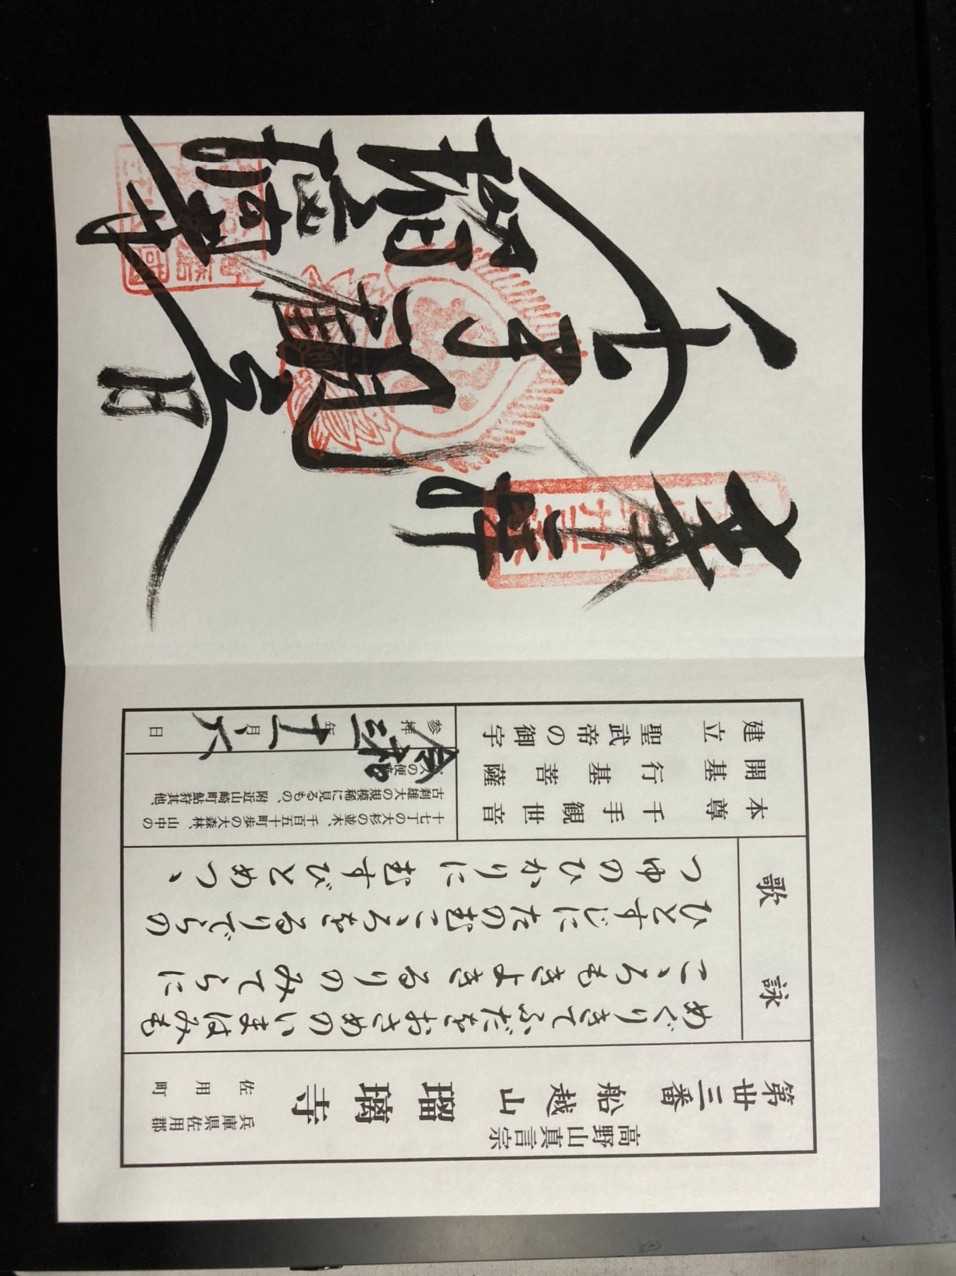 高野山真言宗
第卅三番 船越山 瑠璃寺
兵庫県佐用郡
佐用町
詠歌
めぐりきてふだをおさめのいまはみも
こゝろもきよきるりのみてらに
ひとすじにたのむこゝろをるりでらの
つゆのひかりにむすびとめつゝ
本尊 千手観世音
開基 行基菩薩
建立 聖武帝の御宇
十七丁の大杉の並木、千百五十町歩の大森林、山中の
古刹雄大の規模稀に見るもの、附近山崎町鮎狩其他、
の便
参拝 令和三年十一月六日
奉拝
瑠璃寺